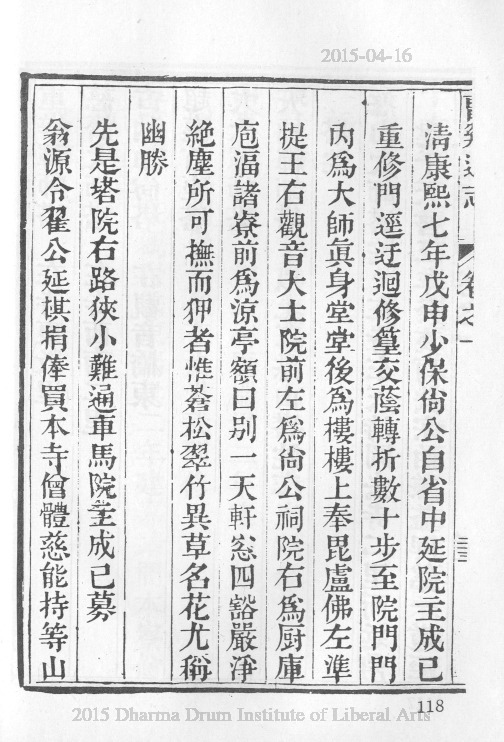 2015-04-16
清康熙七年戊申少保尙公自省中延院主成已
重修門逕迂迴修篁交蔭轉折數十步至院門門
內爲大師眞身堂堂後爲樓樓上奉毘盧佛左準
提王右觀音大士院前左爲尙公祠院右爲厨庫
庖湢諸寮前爲凉亭額曰別一天軒窓四豁嚴淨
絶塵所可撫而狎者惟蒼松翠竹異草名花尤稱
幽勝
先是塔院右路狹小難通車馬院主成已募
翁源令翟公延棋捐俸買本寺僧體慈能持等山
118
2015 Dharma Drum Institute of Liberal Arts